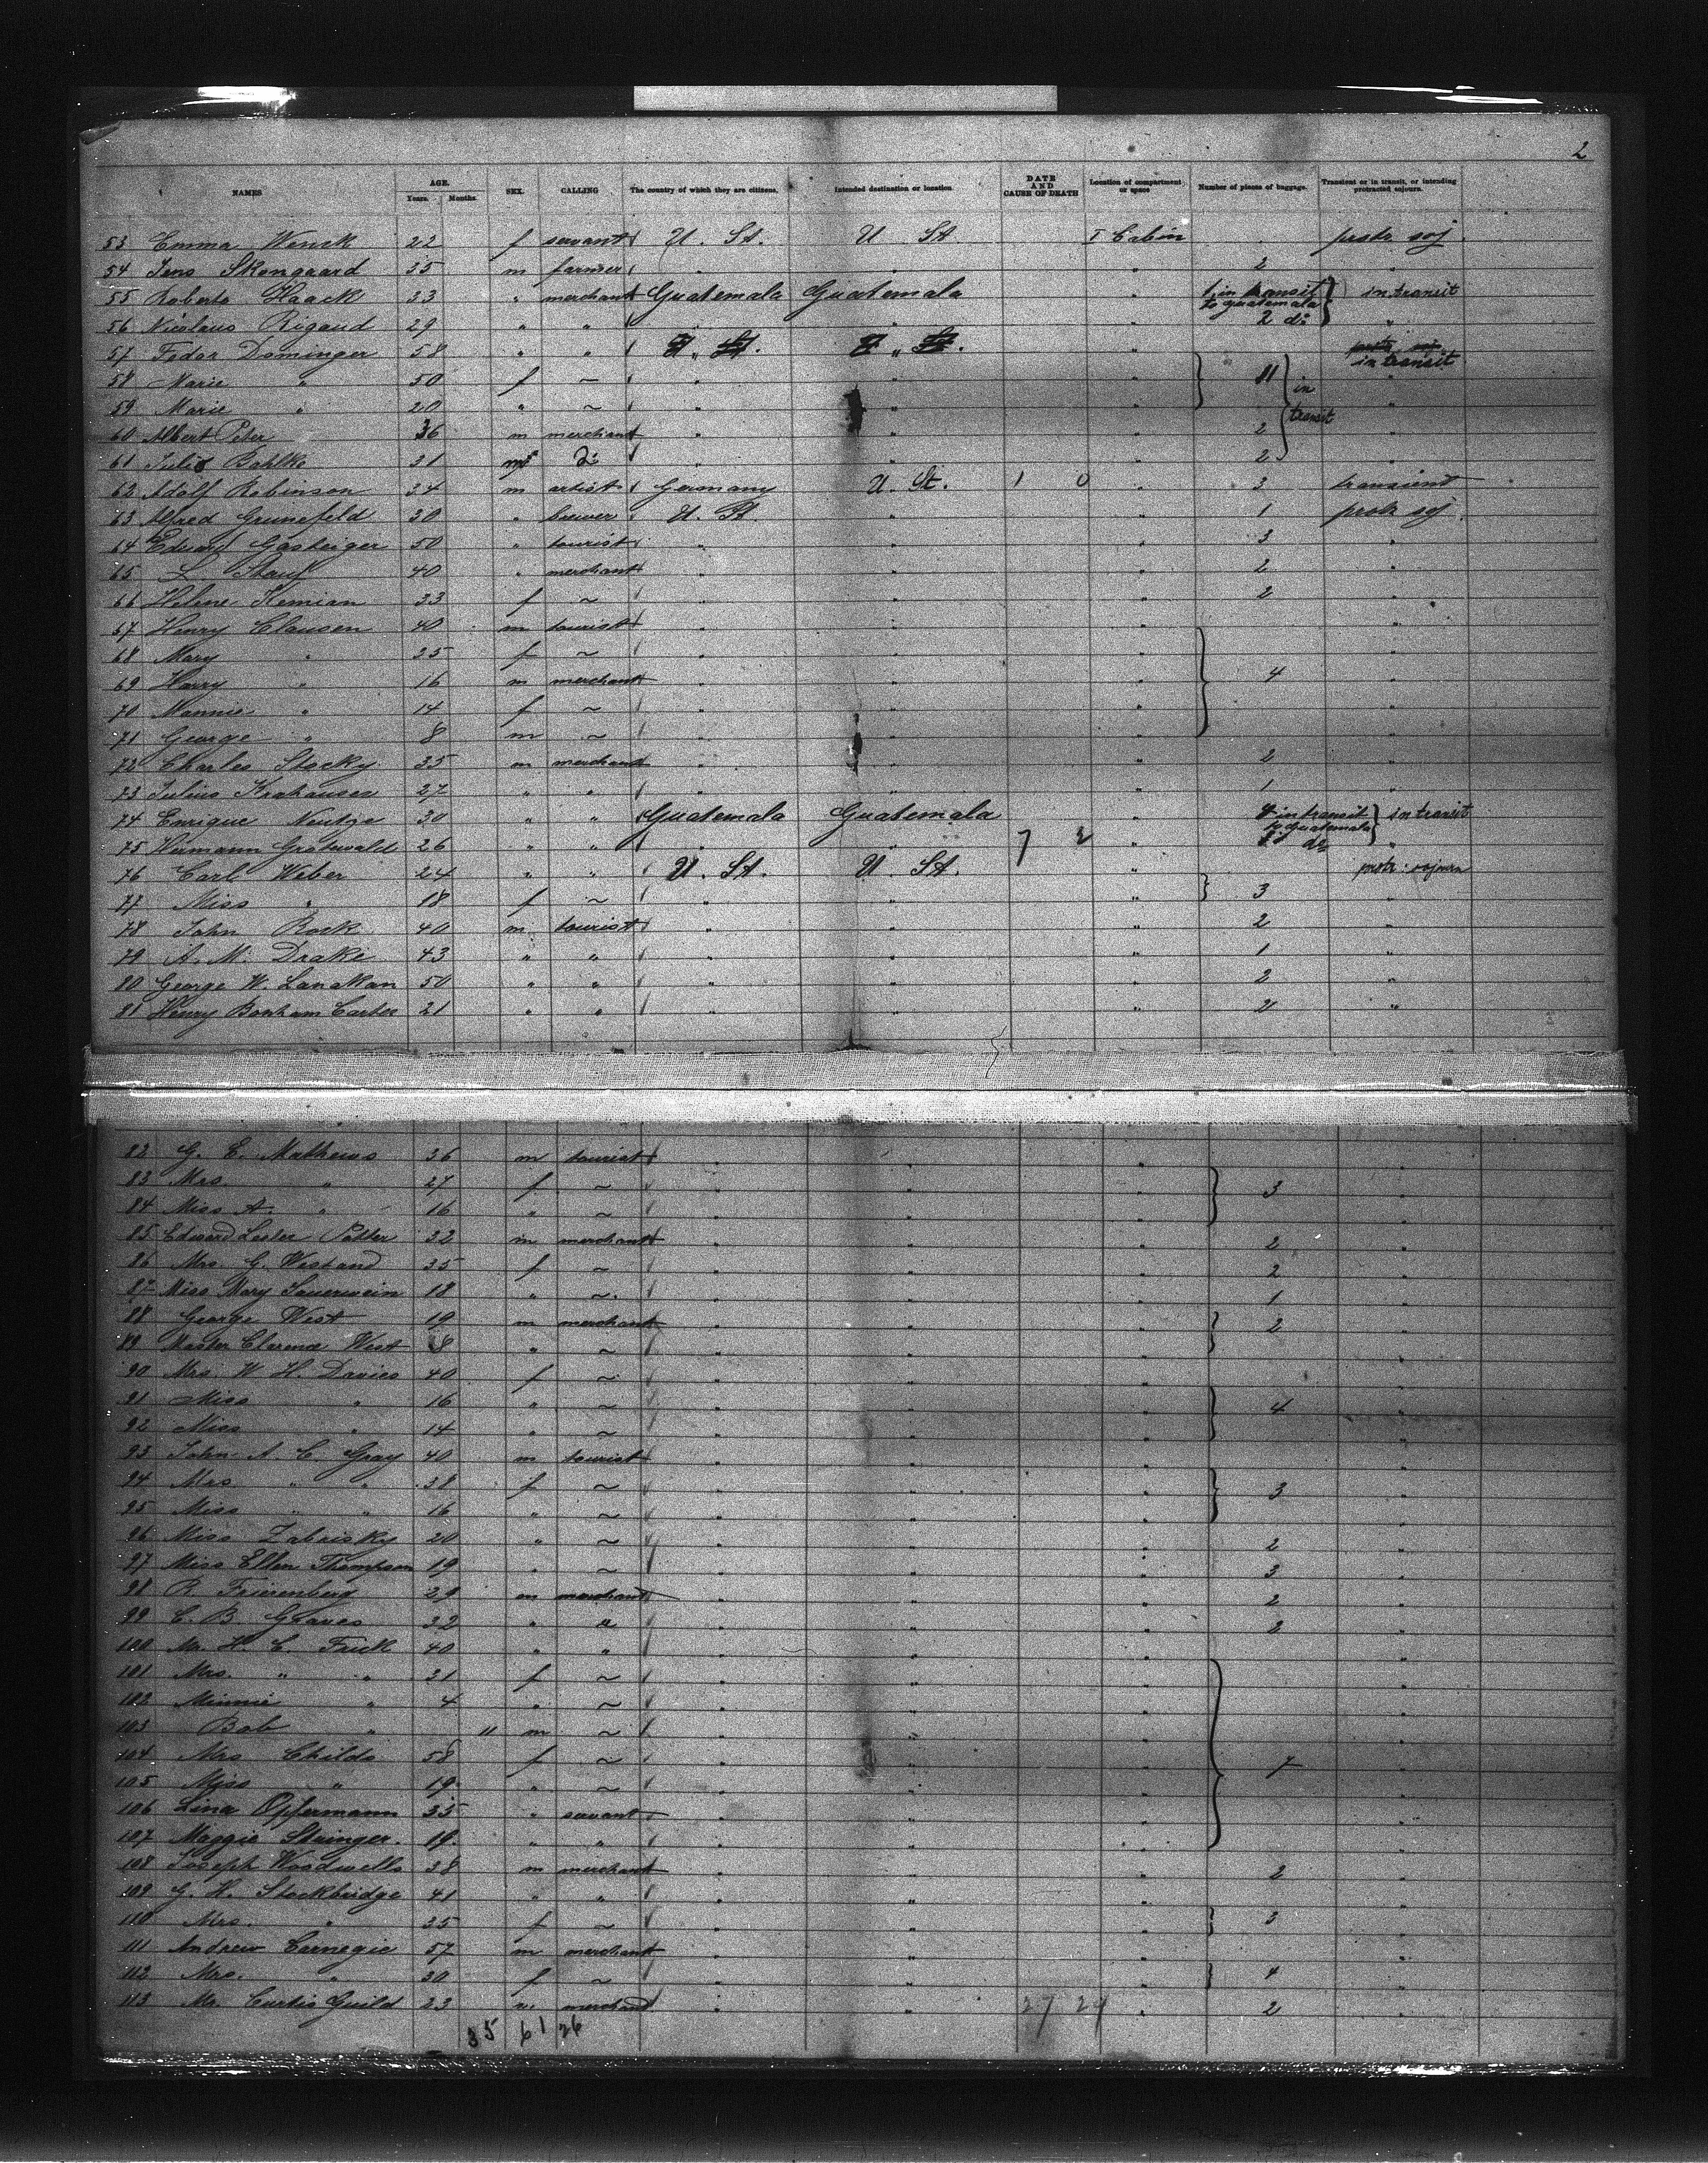 2
NAMES AGE. Years. Months. SEX. CALLING The country of which they are citizens. Intended destination or location DATE AND CAUSE OF DEATH Location of compartment or space Number of pieces of baggage. Transient or in transit, or intending protracted sojourn.
53 Emma Wenck 22 f servant U. St. U St. I Cabin protr. soj.
54 Jens Skongaard 35 m farmer " " " 2 "
55 Roberto Haack 33 " merchant Guatemala Guatemala " 1 in transit to Guatemala in transit
56 Nicolaus Rigaud 29 " " " " " 2 do "
57 Fedor Dominger 58 " " U. St. U. St. " in transit
58 Marie " 50 f ~ " " " 11 in transit "
59 Marie " 20 " ~ " " " "
60 Albert Peter 36 m merchant " " " 2 "
61 Julio Bahlke 31 m do " " " 2 "
62 Adolf Robinson 34 m artist Germany U. St. 1 0 " 3 transient
63 Alfred Grunefeld 30 " brewer U. St. " " 1 protr soj.
64 Eduard Gasteiger 50 " tourist " " " 3 "
65 L. 40 " merchant " " " 2 "
66 Helene Kemian 33 f ~ " " " 2 "
67 Henry Clausen 40 m tourist " " " "
68 Mary " 35 f ~ " " " "
69 Harry " 16 m merchant " " " 4 "
70 Mannie " 14 f ~ " " " "
71 George " 8 m ~ " " " "
72 Charles Stocky 35 m merchant " " " 2 "
73 Julius Krahauser 27 " " " " " 1 "
74 Enrique Neutze 30 " " Guatemala Guatemala " in transit to Guatemala in transit
75 Hermann Grotewald 26 " " " " 7 2 " do "
76 Carl Weber 24 " " U. St. U. St. " protr. sojourn
77 Miss " 18 f ~ " " " 3 "
78 John Rock 40 m tourist " " " 2 "
79 A. M. Drake 43 " " " " " 1 "
80 George W. Lanakan 50 " " " " " 2 "
81 Henry Bonham Carter 21 " " " " " 2 "
82 G. E. Mathews 36 m tourist " " " "
83 Mrs " 27 f ~ " " " 3 "
84 Miss A. " 16 " ~ " " " "
85 Edward Lester Potter 32 m merchant " " " 2 "
86 Mrs. G. West and 35 f ~ " " " 2 "
87 Miss Mary Sauerwein 18 " ~ " " " 1 "
88 George West 19 m merchant " " " 2 "
89 Master Clarence West 8 " ~ " " " "
90 Mrs. W. H. Davies 40 f ~ " " " "
91 Miss " 16 " ~ " " " 4 "
92 Miss " 14 " ~ " " " "
93 John A. C. Gray 40 m tourist " " " "
94 Mrs " " 38 f ~ " " " 3 "
95 Miss " 16 " ~ " " " "
96 Miss Zabrisky 20 " ~ " " " 2 "
97 Miss Ellen Thompson 19 " ~ " " " 3 "
98 R. Frierenberg 29 m merchant " " " 2 "
99 C. B. Graves 32 " " " " " 2 "
100 Mr. H. C. Frick 40 " " " " " "
101 Mrs. " " 31 f ~ " " " "
102 Minnie " 4 " ~ " " " "
103 Bab " 11 m ~ " " " "
104 Mrs Childs 58 f ~ " " " 7 "
105 Miss " 19 " ~ " " " "
106 Lina Opfermann 35 " servant " " " "
107 Maggie Stringer. 19 " " " " " "
108 Joseph Woodwells 38 m merchant " " " 2 "
109 G. H. Stockbridge 41 " " " " " "
110 Mrs. " 35 f ~ " " " 3 "
111 Andrew Carnegie 57 m merchant " " " "
112 Mrs. " 30 f ~ " " " 4 "
113 Mr. Curtis Guild 23 m merchant " " 27 24 " 2 "
35 61 26